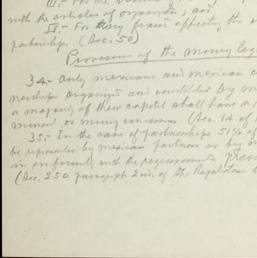 III.- For the
with the articles of organization, and
IV.- For every
partnerships. (Sec. 50)
Provisions of the mining leg
34.- Only mexicans and mexican
nerships organized and controlled by m
a majority of their capital shall have a
mineral or mining concessions (Sec. 14 of
35.- In the case of partnerships 51% of
be represented by mexican partners or by m
in conformity with the requirements
(Sec. 250 paragraph 2nd. of the Regulation